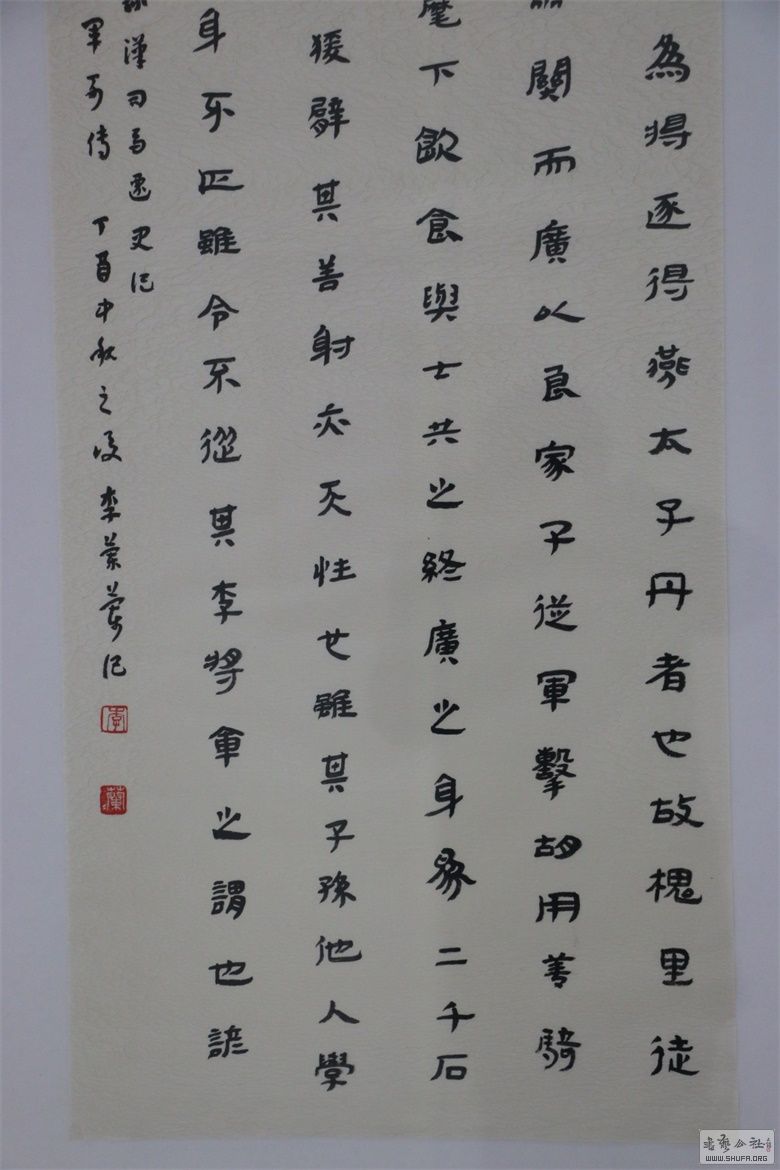 為將逐得燕太子丹者也故槐里徒
關而廣以良家子從軍擊胡用善騎
麾下飲食與士共之終廣之身為二千石
猨臂其善射亦天性也雖其子孫他人學
身不正雖令不從其李將軍之謂也諺
漢司馬遷史記
軍列傳 丁酉中秋之後 李蘭 記
李
蘭
書藝公社
WWW.SHUFA.ORG